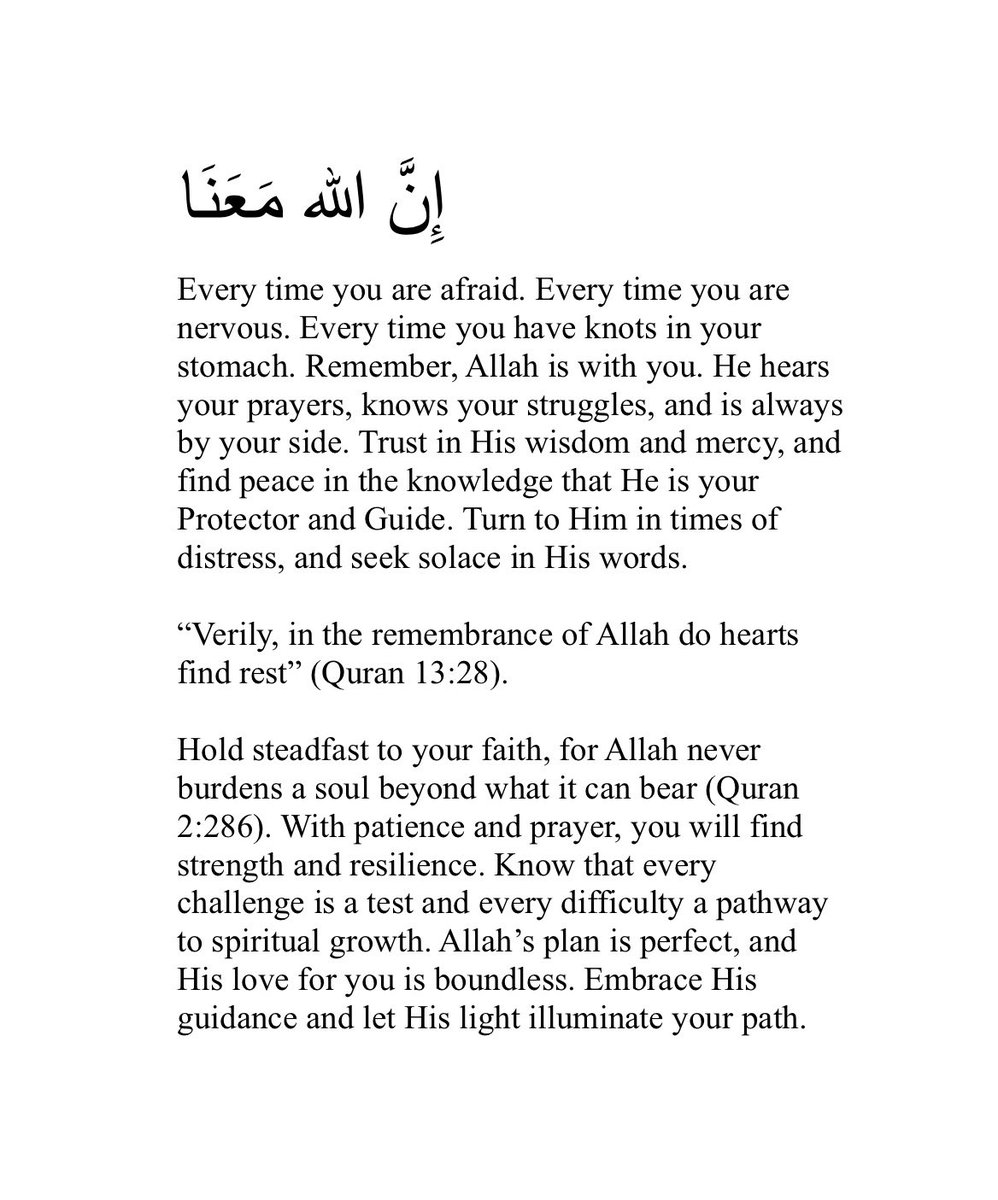 إِنَّ الله مَعَنَا
Every time you are afraid. Every time you are
nervous. Every time you have knots in your
stomach. Remember, Allah is with you. He hears
your prayers, knows your struggles, and is always
by your side. Trust in His wisdom and mercy, and
find peace in the knowledge that He is your
Protector and Guide. Turn to Him in times of
distress, and seek solace in His words.
“Verily, in the remembrance of Allah do hearts
find rest” (Quran 13:28).
Hold steadfast to your faith, for Allah never
burdens a soul beyond what it can bear (Quran
2:286). With patience and prayer, you will find
strength and resilience. Know that every
challenge is a test and every difficulty a pathway
to spiritual growth. Allah’s plan is perfect, and
His love for you is boundless. Embrace His
guidance and let His light illuminate your path.